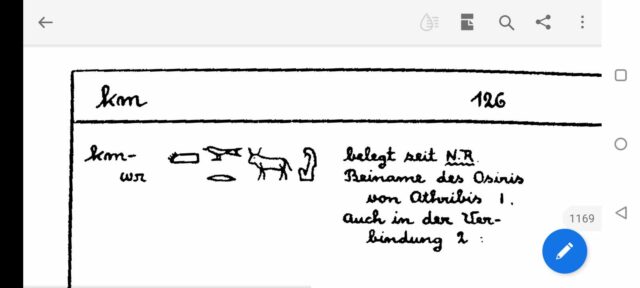 km 126
km- belegt seit N.R.
wr Beiname des Osiris
von Athribis 1.
auch in der Ver-
bindung 2 :
1169